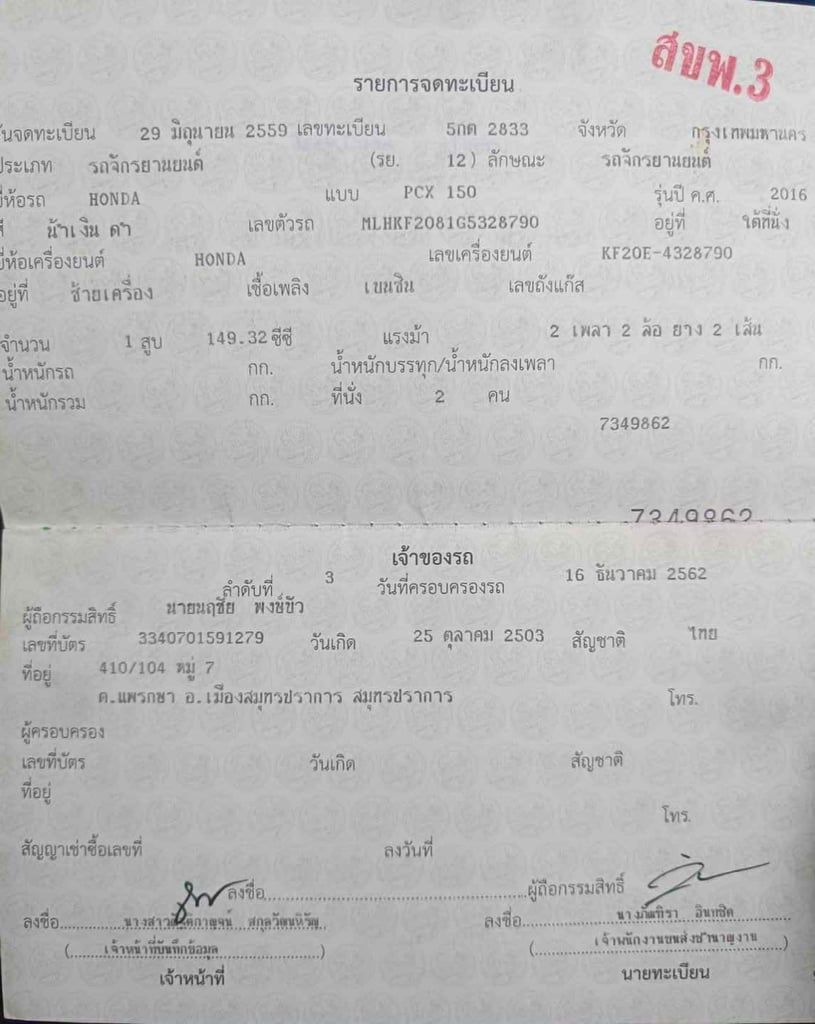 สขพ.3
รายการจดทะเบียน
วันจดทะเบียน 29 มิถุนายน 2559 เลขทะเบียน 5กด 2833 จังหวัด กรุงเทพมหานคร
ประเภท รถจักรยานยนต์ (รย. 12) ลักษณะ รถจักรยานยนต์
ยี่ห้อรถ HONDA แบบ PCX 150 รุ่นปี ค.ศ. 2016
สี น้ำเงิน ดำ เลขตัวรถ MLHKF2081G5328790 อยู่ที่ ใต้ที่นั่ง
ยี่ห้อเครื่องยนต์ HONDA เลขเครื่องยนต์ KF20E-4328790
อยู่ที่ ซ้ายเครื่อง เชื้อเพลิง เบนซิน เลขถังแก๊ส
จำนวน 1 สูบ 149.32 ซีซี แรงม้า 2 เพลา 2 ล้อ ยาง 2 เส้น
น้ำหนักรถ กก. น้ำหนักบรรทุก/น้ำหนักลงเพลา กก.
น้ำหนักรวม กก. ที่นั่ง 2 คน
7349862
7349862
เจ้าของรถ
ลำดับที่ 3 วันที่ครอบครองรถ 16 ธันวาคม 2562
ผู้ถือกรรมสิทธิ์ นายนฤชัย พงษ์ขัว
เลขที่บัตร 3340701591279 วันเกิด 25 ตุลาคม 2503 สัญชาติ ไทย
ที่อยู่ 410/104 หมู่ 7
ต.แพรกษา อ.เมืองสมุทรปราการ สมุทรปราการ โทร.
ผู้ครอบครอง
เลขที่บัตร วันเกิด สัญชาติ
ที่อยู่
โทร.
สัญญาเช่าซื้อเลขที่ ลงวันที่
ลงชื่อ ผู้ถือกรรมสิทธิ์
ลงชื่อ นางสาว ลงชื่อ นางภัณฑิรา อินทชิต
(เจ้าหน้าที่บันทึกข้อมูล) (เจ้าพนักงานขนส่งชำนาญงาน)
เจ้าหน้าที่ นายทะเบียน